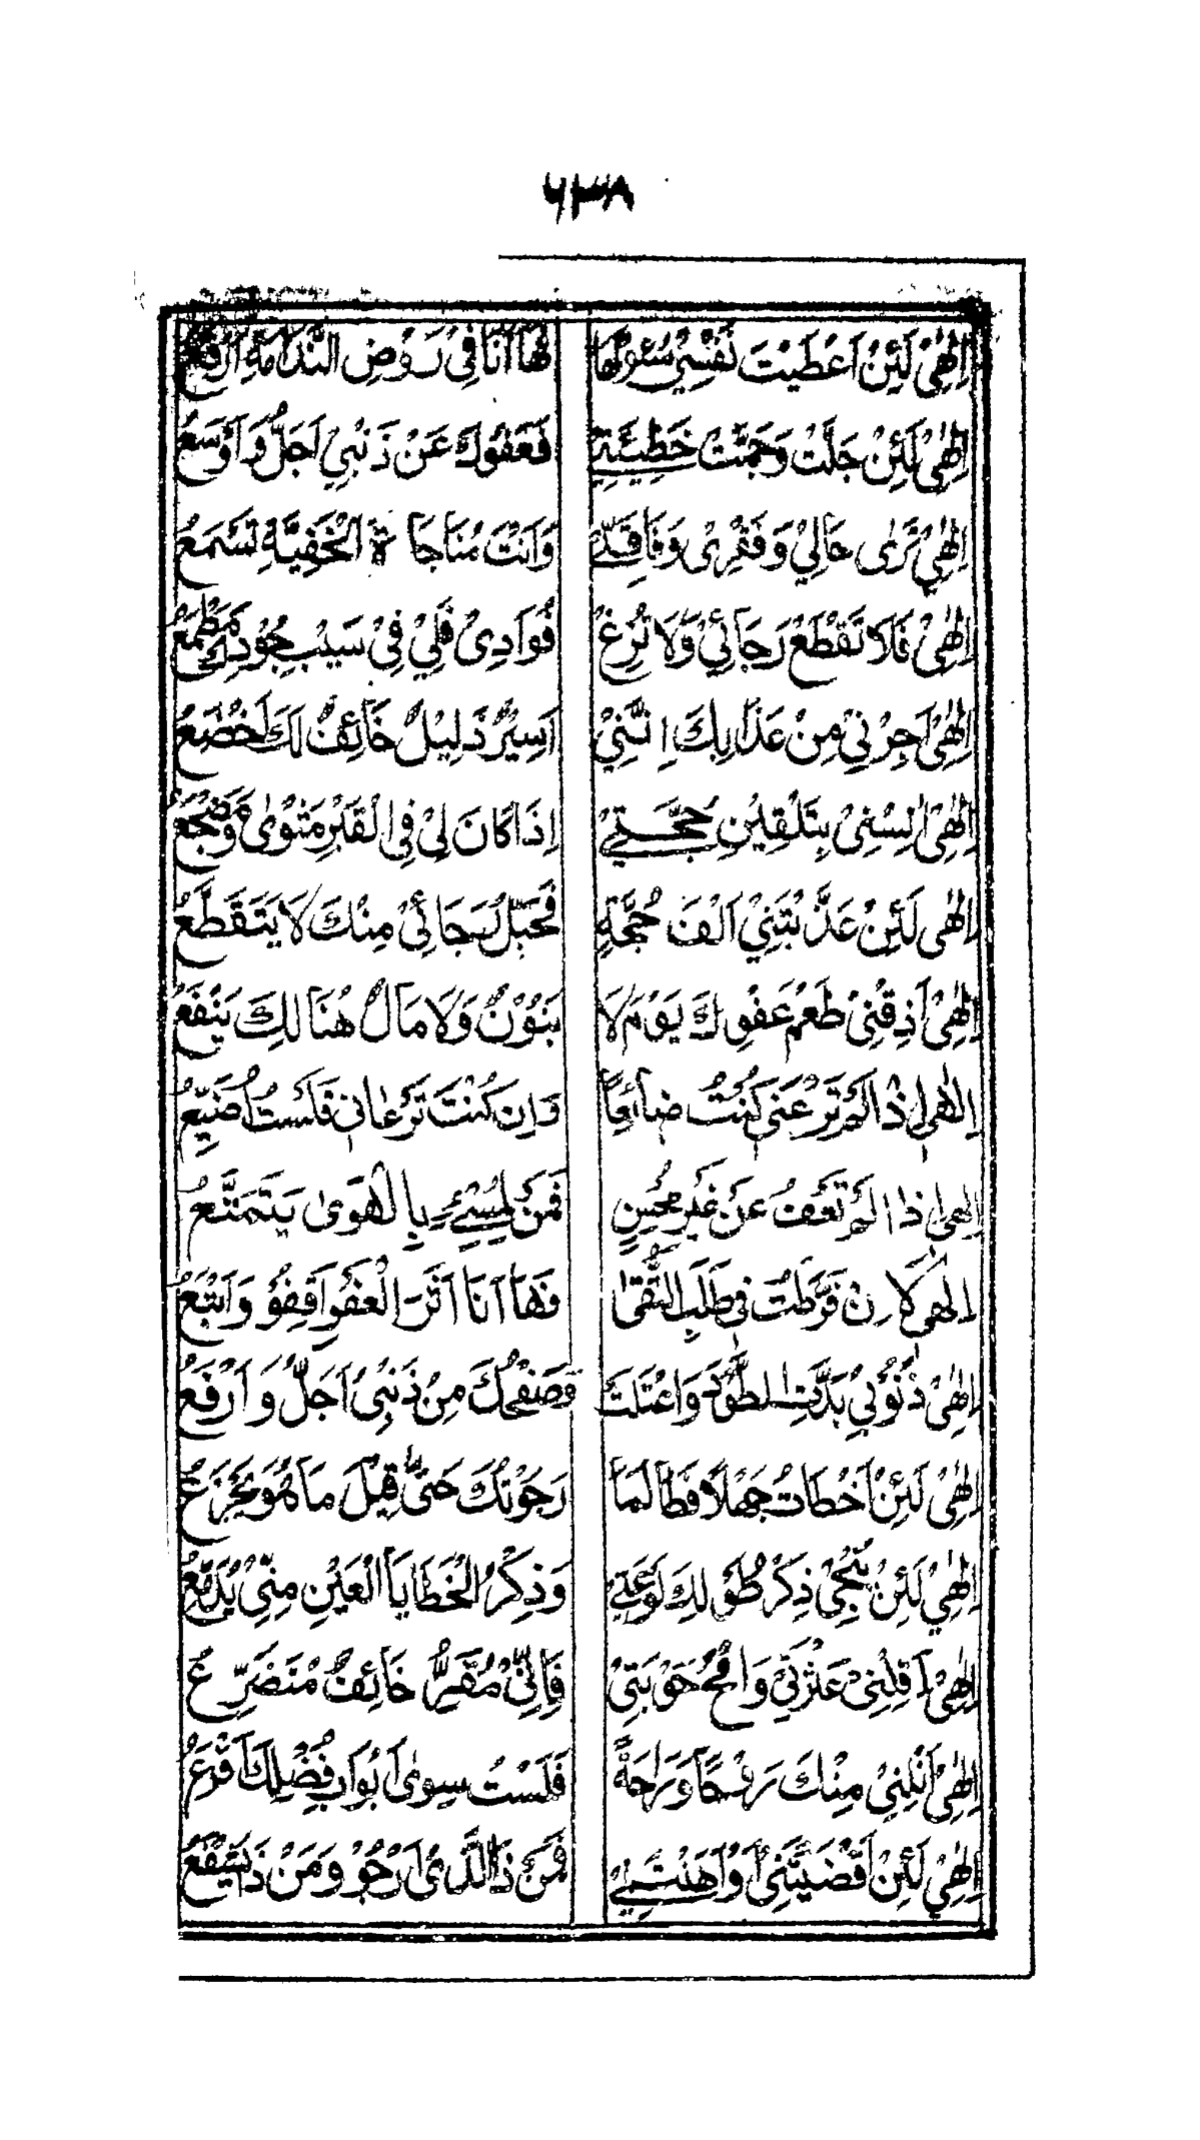 ۶۳۸
اِلٰهِيْ لَئِنْ اَعْطَيْتَ نَفْسِيْ سُئُولَهَا فَهَا اَنَا فِيْ رَوْضِ النَّدَامَةِ اَرْتَعُ
اِلٰهِيْ لَئِنْ جَلَّتْ وَجَمَّتْ خَطِيْئَتِيْ فَعَفْوُكَ عَنْ ذَنْبِيْ اَجَلُّ وَاَوْسَعُ
اِلٰهِيْ تَرٰى حَالِيْ وَفَقْرِىْ وَفَاقَتِيْ وَاَنْتَ مُنَاجَاةَ الْخَفِيَّةِ تَسْمَعُ
اِلٰهِيْ فَلَا تَقْطَعْ رَجَائِيْ وَلَا تُزِغْ فُوَادِىْ فَلِيْ فِيْ سَيْبِ جُوْدِكَ مَطْمَعُ
اِلٰهِيْ اَجِرْنِيْ مِنْ عَذَابِكَ اِنَّنِيْ اَسِيْرٌ ذَلِيْلٌ خَائِفٌ لَكَ اَخْضَعُ
اِلٰهِيْ اٰنِسْنِيْ بِتَلْقِيْنِ حُجَّتِيْ اِذَا كَانَ لِيْ فِي الْقَبْرِ مَثْوًى وَمَضْجَعُ
اِلٰهِيْ لَئِنْ عَذَّبْتَنِيْ اَلْفَ حُجَّةٍ فَحَبْلُ رَجَائِيْ مِنْكَ لَا يَتَقَطَّعُ
اِلٰهِيْ اَذِقْنِيْ طَعْمَ عَفْوِكَ يَوْمَ لَا بَنُوْنٌ وَلَا مَالٌ هُنَالِكَ يَنْفَعُ
اِلٰهِيْ اِذَا لَمْ تَرْعَنِيْ كُنْتُ ضَائِعًا وَاِنْ كُنْتَ تَرْعَانِيْ فَلَسْتُ اُضَيَّعُ
اِلٰهِيْ اِذَا لَمْ تَعْفُ عَنْ غَيْرِ مُحْسِنٍ فَمَنْ لِمُسِيْءٍ بِالْهَوٰى يَتَمَتَّعُ
اِلٰهِيْ لَاِنْ فَرَّطْتُ فِيْ طَلَبِ التُّقٰى فَهَا اَنَا اَثَرَ الْعَفْوِ اَقْفُوْ وَاَتْبَعُ
اِلٰهِيْ ذُنُوْبِيْ بَذَّتِ الطَّوْدَ وَاعْتَلَتْ فَصَفْحُكَ مِنْ ذَنْبِيْ اَجَلُّ وَاَرْفَعُ
اِلٰهِيْ لَئِنْ اَخْطَاتُ جَهْلًا فَطَالَمَا رَجَوْتُكَ حَتّٰى قِيْلَ مَا هُوَ يَجْزَعُ
اِلٰهِيْ لَئِنْ يُنْجِيْ ذِكْرُ طَوْلِكَ لَوْعَتِيْ وَذِكْرُ الْخَطَايَا الْعَيْنَ مِنِّيْ يُدَمِّعُ
اِلٰهِيْ اَقِلْنِيْ عَثْرَتِيْ وَامْحُ حَوْبَتِيْ فَاِنِّيْ مُقِرٌّ خَائِفٌ مُتَضَرِّعُ
اِلٰهِيْ اَنِلْنِيْ مِنْكَ رَوْحًا وَرَاحَةً فَلَسْتُ سِوٰى اَبْوَابِ فَضْلِكَ اَقْرَعُ
اِلٰهِيْ لَئِنْ اَقْصَيْتَنِيْ اَوْ اَهَنْتَنِيْ فَمَنْ ذَا الَّذِىْ اَرْجُوْ وَمَنْ ذَا يُشَفَّعُ